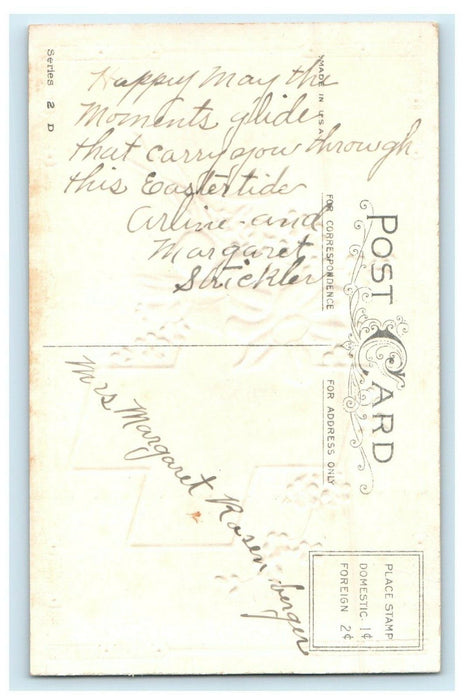 Series 2 D
MADE IN U.S.A.
Happy May the
Moments glide
that carry you through
this Eastertide
Arline and
Margaret
Strickler
POST CARD
FOR CORRESPONDENCE
FOR ADDRESS ONLY
Mrs Margaret Rosenberger
PLACE STAMP
DOMESTIC 1¢
FOREIGN 2¢